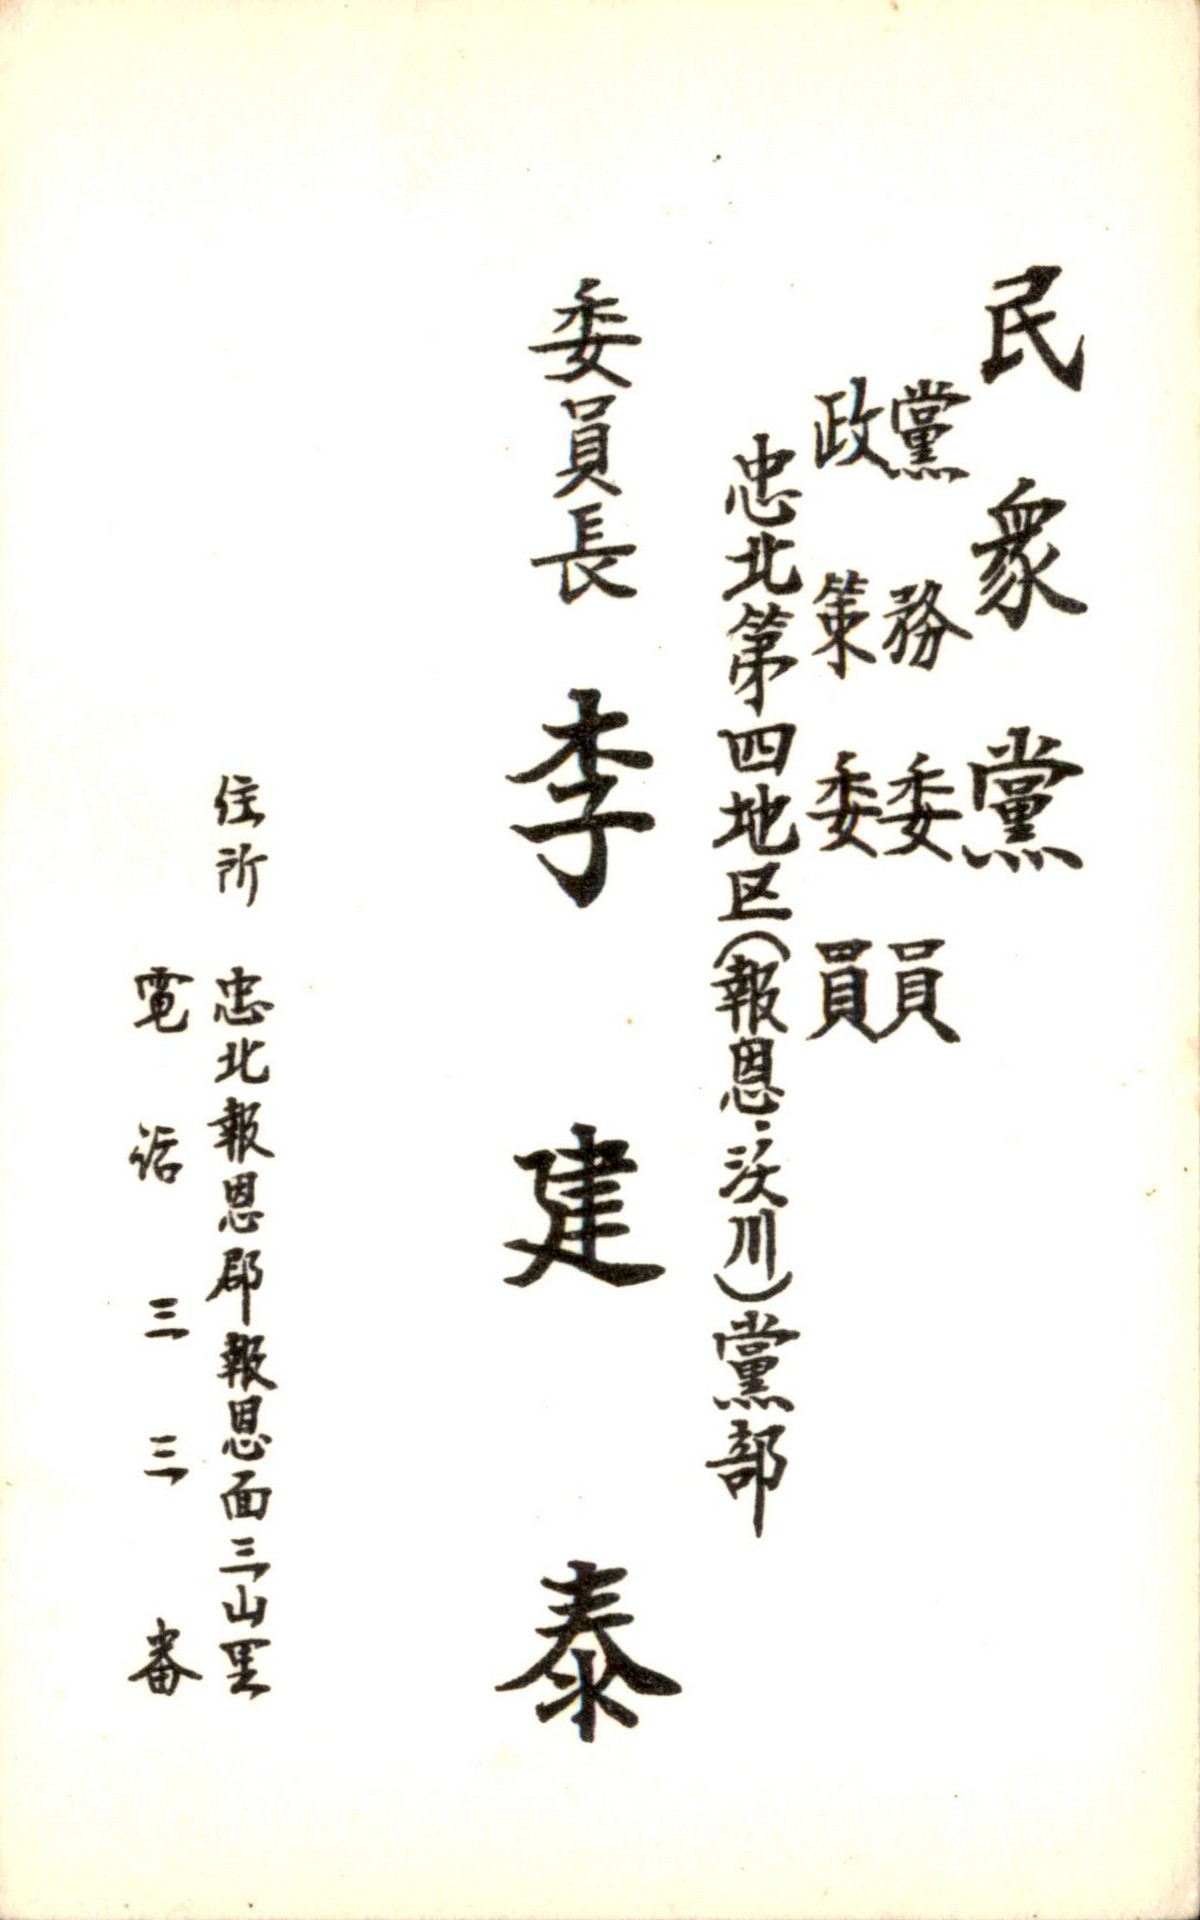 民衆黨
黨務委員
政策委員
忠北第四地区(報恩、沃川)黨部
委員長 李建泰
住所 忠北報恩郡報恩面三山里
電話 三三番